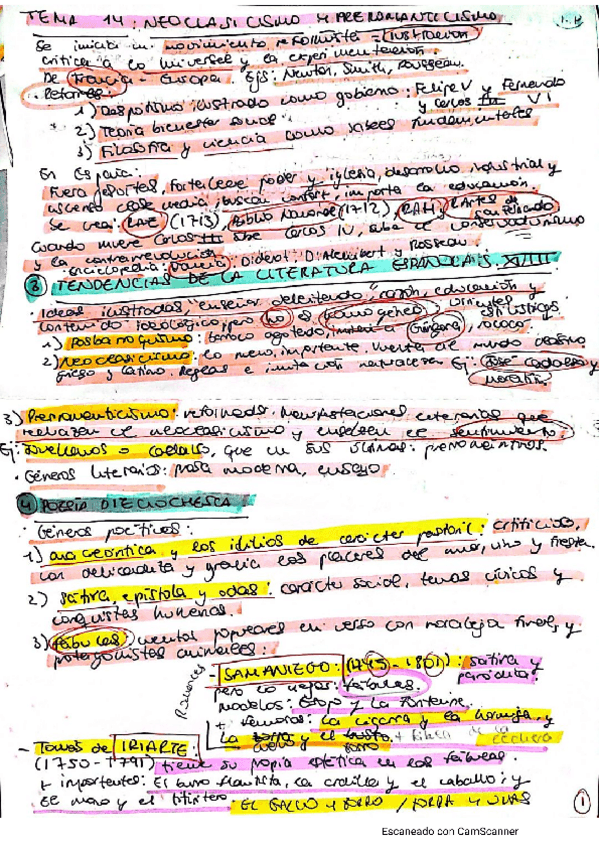 TEMA 14: NEOCLASICISMO Y PRERROMANTICISMO
Se inicia un movimiento reformista = ilustración
crítica a lo universal y la experimentación.
De Francia - Europa. Ejs: Newton, Smith, Rousseau.
Reformas:
1) Despotismo ilustrado como gobierno: Felipe V y Fernando VI
y Carlos III
2) Teoría bienestar social
3) Filosofía y ciencia como bases fundamentales
En España:
Fuera, fortalecer poder y iglesia, desarrollo industrial y
ascenso clase media: buscan confort, importa la educación.
Se crea: RAE (1713), (1712), RAH, RArtes de San Fernando
Cuando muere Carlos III sube Carlos IV, sube el conservadurismo
y la contrarrevolución
enciclopedia: Diderot, D'Alembert y Rosseau.
3 TENDENCIAS DE LA LITERATURA ESPAÑOLA S. XVIII
Ideas ilustradas, "enseñar deleitando", razón, educación y
contenido ideológico, pero no es homogéneo. vertientes estilísticas
1) Posbarroquismo: barroco agotado, imitan a Góngora, rococó.
2) Neoclasicismo: lo más importante, vuelta al mundo
griego y latino. Reglas e imitación naturaleza Ej: José Cadalso y
Moratín.
3) Prerromanticismo: Manifestaciones literarias que
rechazan el neoclasicismo y ensalzan el sentimiento.
Ej: Jovellanos o Cadalso, que en sus últimas: prerrománticos.
· Géneros literarios: prosa moderna, ensayo.
4 POESÍA DIECIOCHESCA
Géneros poéticos:
1) anacreóntica y los idilios de carácter pastoril: artificioso,
con delicadeza y gracia los placeres del amor, vino y fiesta.
2) sátira, epístola y odas: carácter social, temas cívicos y
conquistas humanas.
3) fábulas: cuentos populares en verso con moraleja final, y
protagonistas animales:
- SAMANIEGO: (1745-1801): sátira y parodia
pero lo mejor: fábulas.
modelos: Esopo y La Fontaine.
+ famosas: La cigarra y la hormiga, y
la zorra y el busto. + fábula de la lechera
- Tomás de IRIARTE:
(1750-1791) tiene su propia estética en las fábulas.
+ importantes: El burro flautista, la ardilla y el caballo, y
el mono y el titiritero. EL GALLO Y ZORRO / ZORRA Y UVAS
1
Escaneado con CamScanner